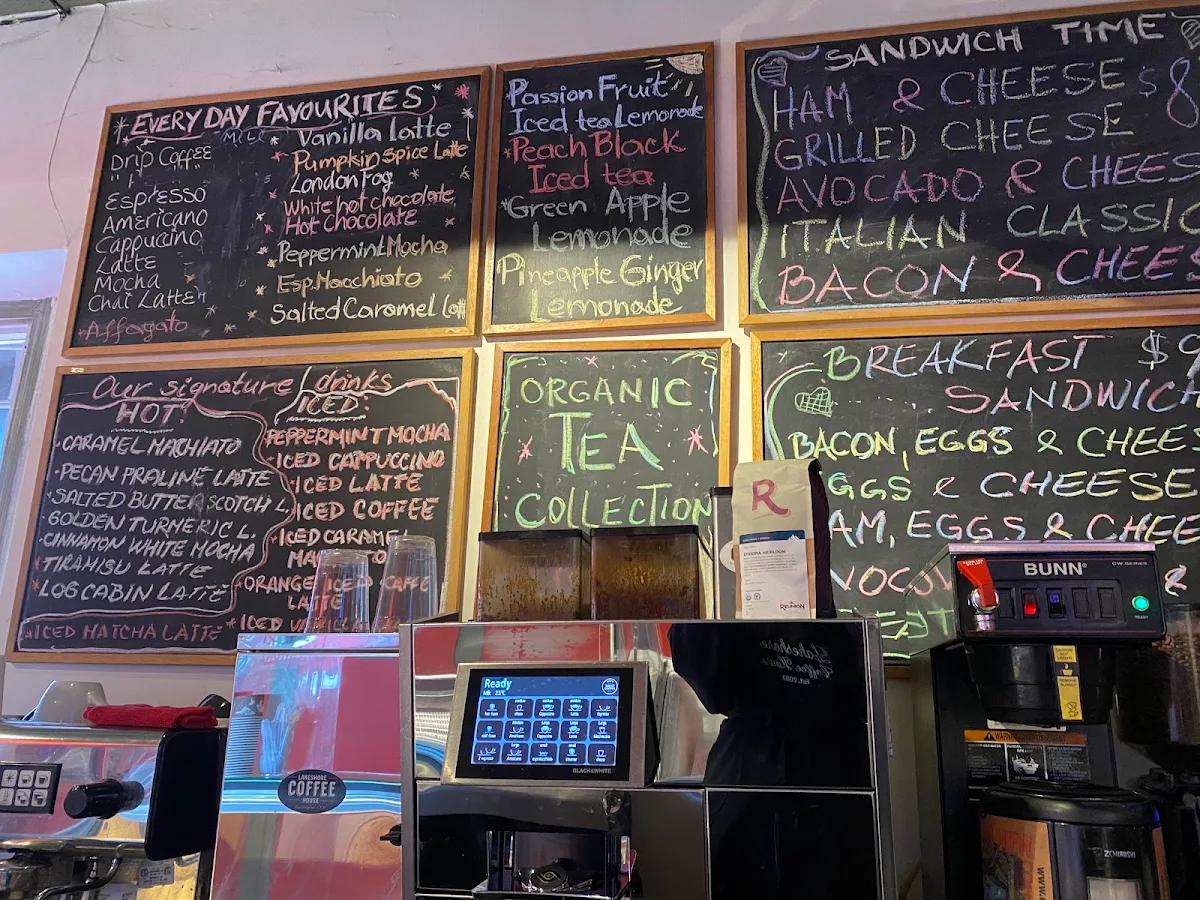 EVERY DAY FAVOURITES
Drip Coffee
Espresso
Americano
Cappuccino
Latte
Mocha
Chai Latte
Affagato
Vanilla Latte
Pumpkin Spice Latte
London Fog
White hot chocolate
Hot chocolate
Peppermint Mocha
Esp. Macchiato
Salted Caramel
Passion Fruit
Iced tea Lemonade
Peach Black
Iced tea
Green Apple
Lemonade
Pineapple Ginger
Lemonade
SANDWICH TIME
HAM & CHEESE $8
GRILLED CHEESE
AVOCADO & CHEES
ITALIAN CLASSIC
BACON & CHEES
Our signature drinks
HOT:
CARAMEL MACHIATO
PECAN PRALINE LATTE
SALTED BUTTER SCOTCH L.
GOLDEN TURMERIC L.
CINNAMON WHITE MOCHA
TIRAMISU LATTE
LOG CABIN LATTE
ICED MATCHA LATTE
ICED:
PEPPERMINT MOCHA
ICED CAPPUCCINO
ICED LATTE
ICED COFFEE
ICED CARAME
ORANGE ICED CAFFE
LATTE
ICED
ORGANIC
TEA
COLLECTION
BREAKFAST $9
SANDWICH
BACON, EGGS & CHEES
GGS & CHEESE
AM, EGGS & CHEE
R
ETHIOPIA HEIRLOOM
REUNION
BUNN
CW SERIES
READY
Ready
BLACK&WHITE
LAKESHORE
COFFEE
HOUSE
Lakeshore
Coffee House
WARNING